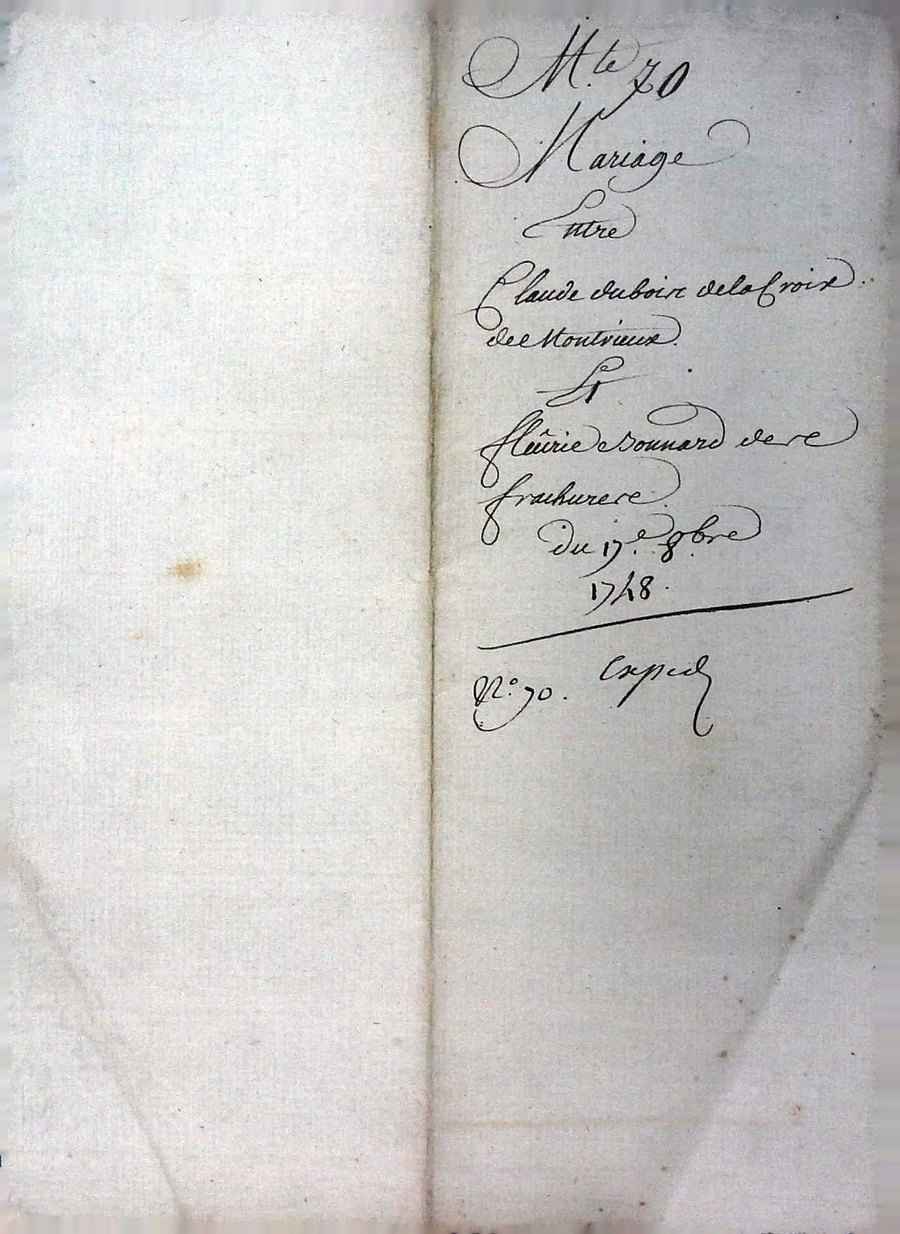 M.te 70
Mariage
Entre
Claude dubois de la Croix
de Montrieux.
Et
fleurie Bonnard de
du 17.e 8bre
1748.
N.° 70. Exped